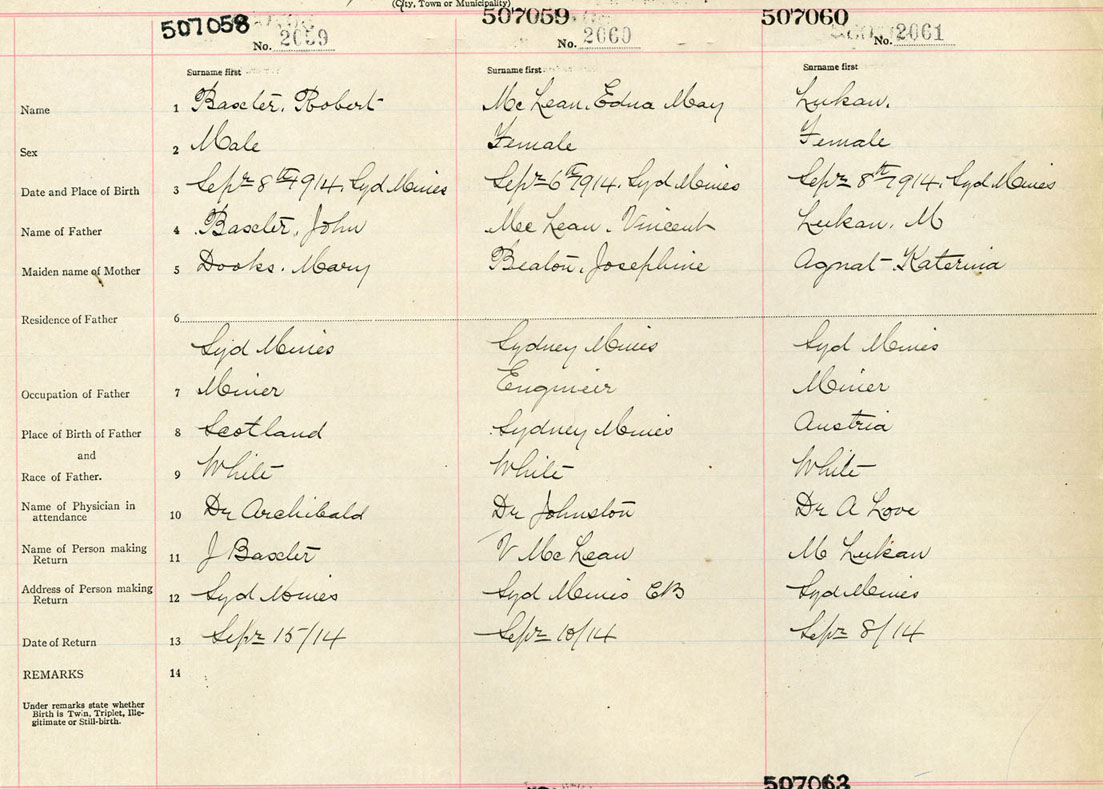 (City, Town or Municipality)
507058 507059 507060
No. 2059 No. 2060 No. 2061
Surname first Surname first Surname first
Name 1 Baxter, Robert Mc Lean, Edna May Lukan,
Sex 2 Male Female Female
Date and Place of Birth 3 Sepr 8th 1914, Syd Mines Sepr 6th 1914, Syd Mines Sepr 8th 1914, Syd Mines
Name of Father 4 Baxter, John Mc Lean, Vincent Lukan, M
Maiden name of Mother 5 Dooks, Mary Beaton, Josephine Agnat Katerina
Residence of Father 6
Syd Mines Sydney Mines Syd Mines
Occupation of Father 7 Miner Engineer Miner
Place of Birth of Father 8 Scotland Sydney Mines Austria
and
Race of Father. 9 White White White
Name of Physician in
attendance 10 Dr Archibald Dr Johnston Dr A Love
Name of Person making
Return 11 J Baxter V Mc Lean M Lukan
Address of Person making
Return 12 Syd Mines Syd Mines CB Syd Mines
Date of Return 13 Sepr 15/14 Sepr 10/14 Sepr 8/14
REMARKS 14
Under remarks state whether
Birth is Twin, Triplet, Ille-
gitimate or Still-birth.
507063